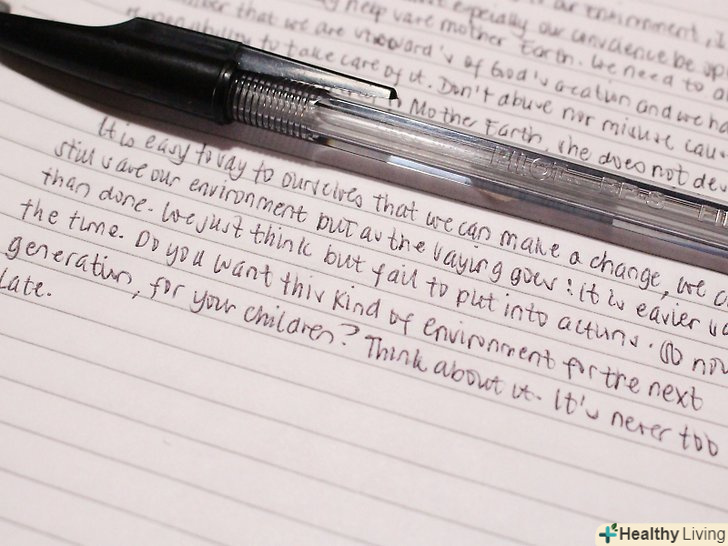 especially our conscience be op
help save mother Earth. We need to
that we are steward's of God's creation and we
to take care of it. Don't abuse nor misuse
Mother Earth, she does not de
It is easy to say to ourselves that we can make a change, we
still save our environment but as the saying goes: It is easier
than done. We just think but fail to put into actions. So now
the time. Do you want this kind of environment for the next
generation, for your children? Think about it. It's never too
late.
PILOT
Healthy Living